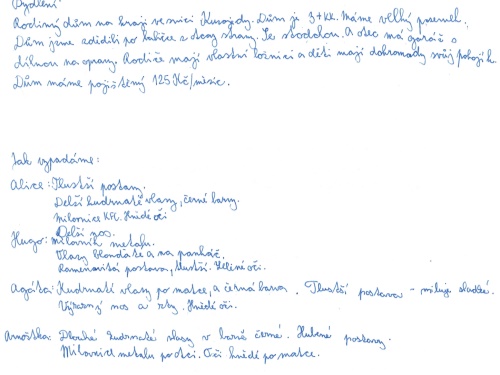 Bydlení
Rodinný dům na kraji vesnici Kunojedy. Dům je 3+kk. Máme velký pozemek.
Dům jsme zdědili po babičce z otcovy strany. Se stodolou. A otec má garáž s
dílnou na opravy. Rodiče mají vlastní ložnici a děti mají dohromady svůj pokojík.
Dům máme pojištěný 125 Kč/měsíc.
Jak vypadáme:
Alice: Tlustší postavy.
Delší kudrnaté vlasy, černé barvy.
Milovnice KFC. Hnědé oči
Delší nos.
Hugo: milovník metalu.
Vlasy blonďaté a na
Ramenovitá postava, tlustší. Zelené oči.
Agáta: Kudrnaté vlasy po matce, a černá barva. Tlustší postava - miluje sladké.
Výrazný nos a rty. Hnědé oči.
Arnoštka: Dlouhé kudrnaté vlasy v barvě černé. Hubené postavy.
Milovnice metalu po otci. Oči hnědé po matce.